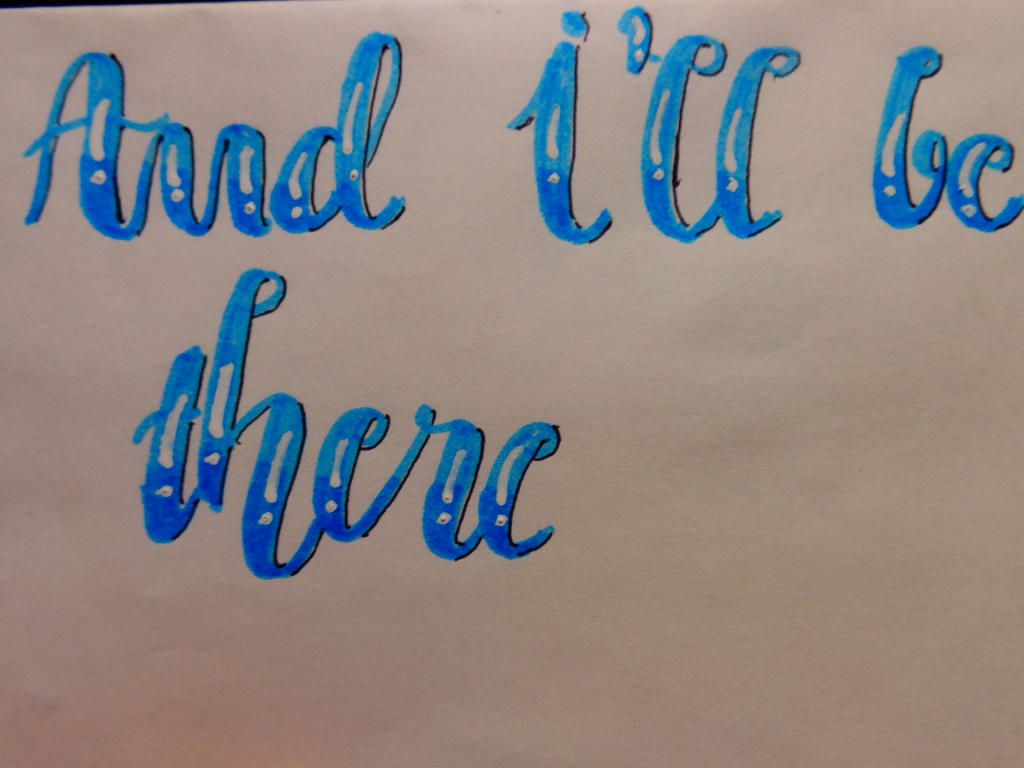 And i'll be
there